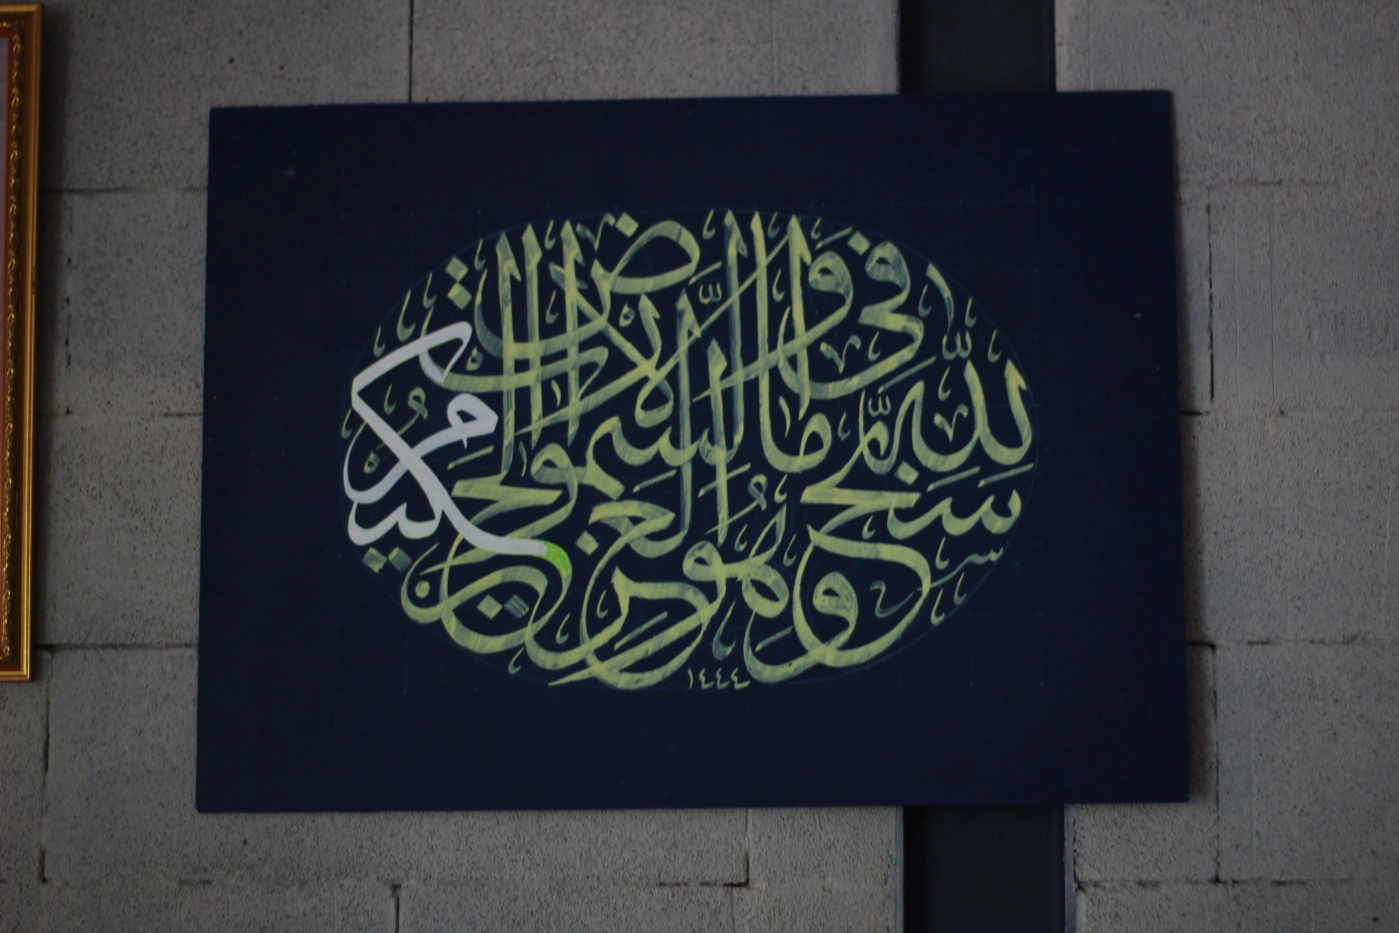 سبح لله ما في السموات والأرض وهو العزيز الحكيم
١٤٤٤